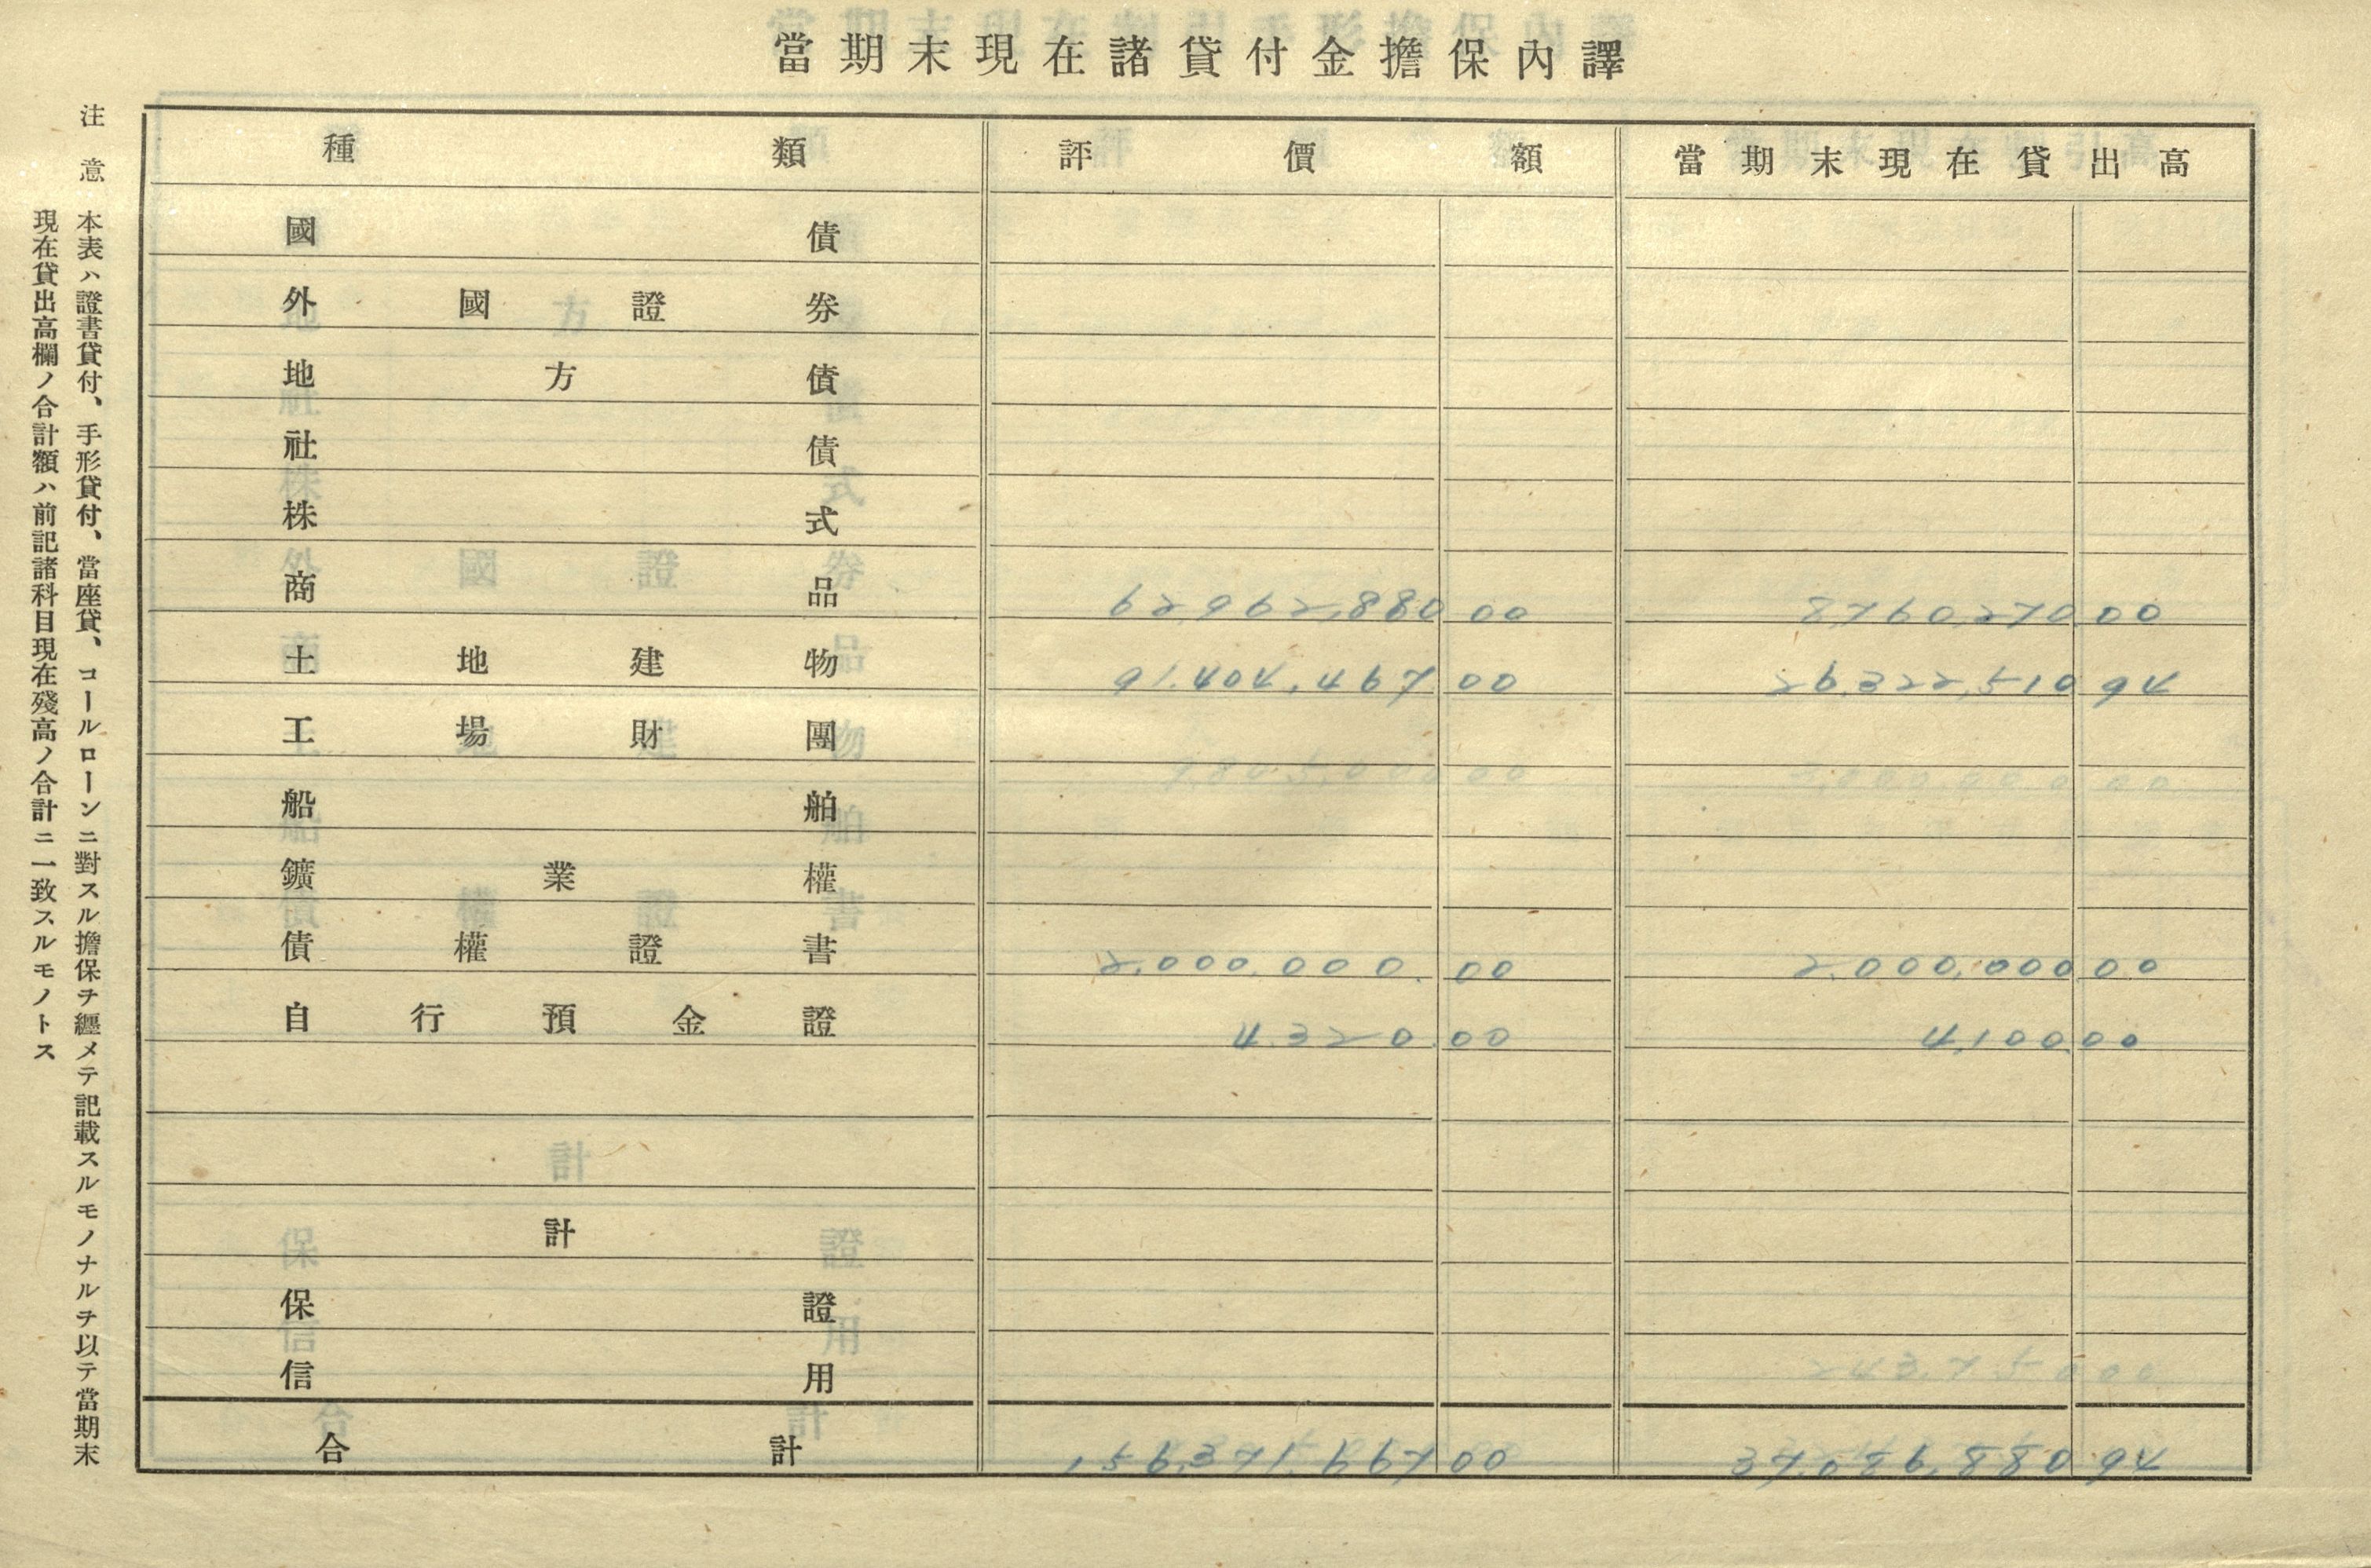 當期末現在諸貸付金擔保內譯
種類 評價額 當期末現在貸出高
國債
外國證券
地方債
社債
株式
商品 62,962,880 00 8,760,270.00
土地建物 91,404,467 00 26,322,510 94
工場財團
船舶
鑛業權
債權證書 2,000,000. 00 2,000,000.00
自行預金證 4,320 00 4,100.00
計
保證
信用
合計 156,371,667 00 37,086,880 94
注意 本表ハ證書貸付、手形貸付、當座貸、コールローンニ對スル擔保ヲ纒メテ記載スルモノナルヲ以テ當期末
現在貸出高欄ノ合計額ハ前記諸科目現在殘高ノ合計ニ一致スルモノトス